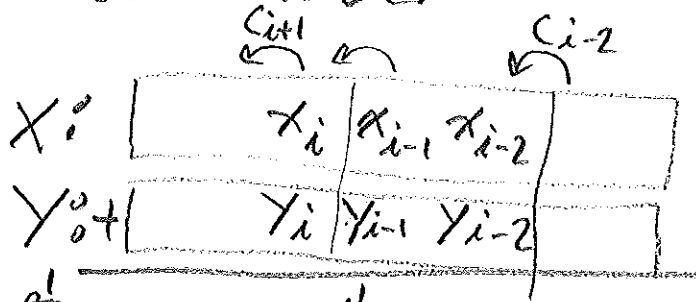 C_{i+1} C_{i-2}
X: x_i x_{i-1} x_{i-2}
Y:+ y_i y_{i-1} y_{i-2}